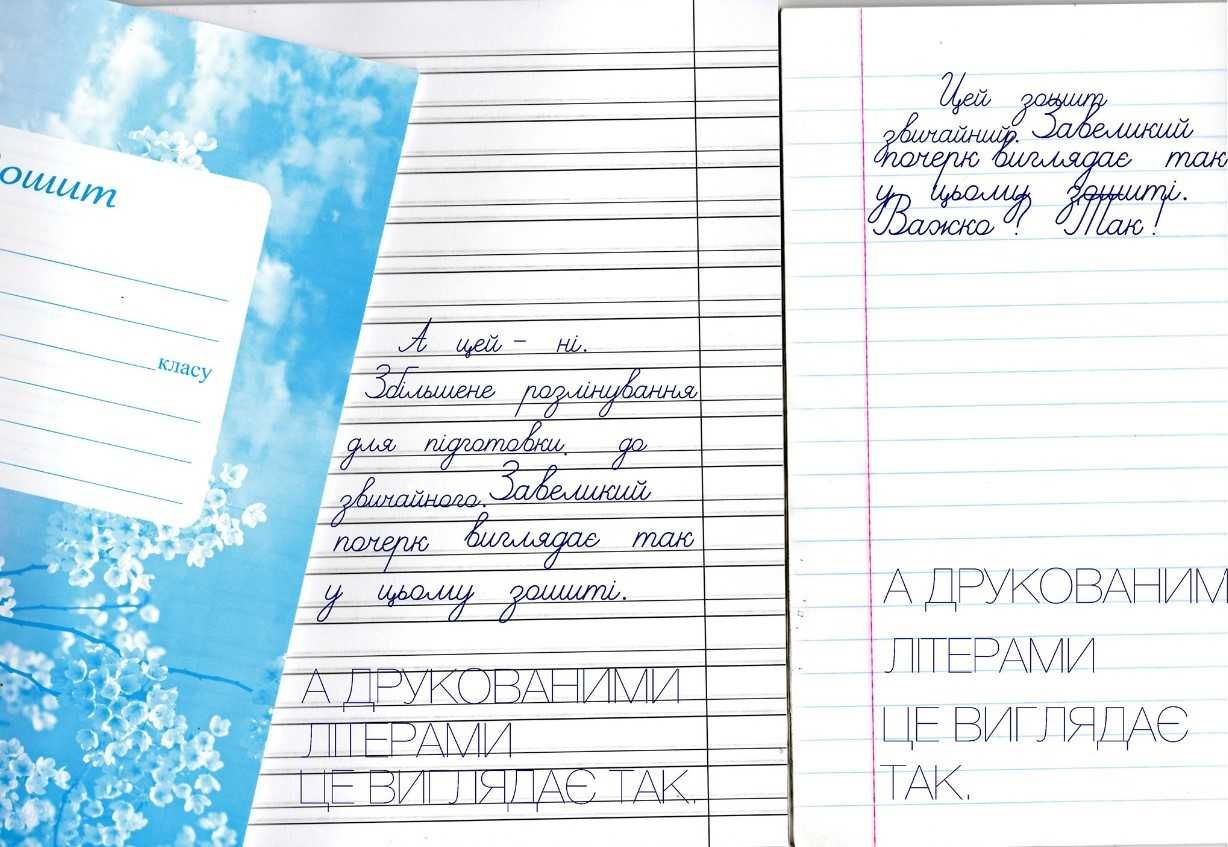 Зошит
класу
А цей – ні.
Збільшене розлінування
для підготовки до
звичайного. Завеликий
почерк виглядає так
у цьому зошиті.
А ДРУКОВАНИМИ
ЛІТЕРАМИ
ЦЕ ВИГЛЯДАЄ ТАК.
Цей зошит
звичайний. Завеликий
почерк виглядає так
у цьому зошиті.
Важко? Так!
А ДРУКОВАНИМ
ЛІТЕРАМИ
ЦЕ ВИГЛЯДАЄ
ТАК.